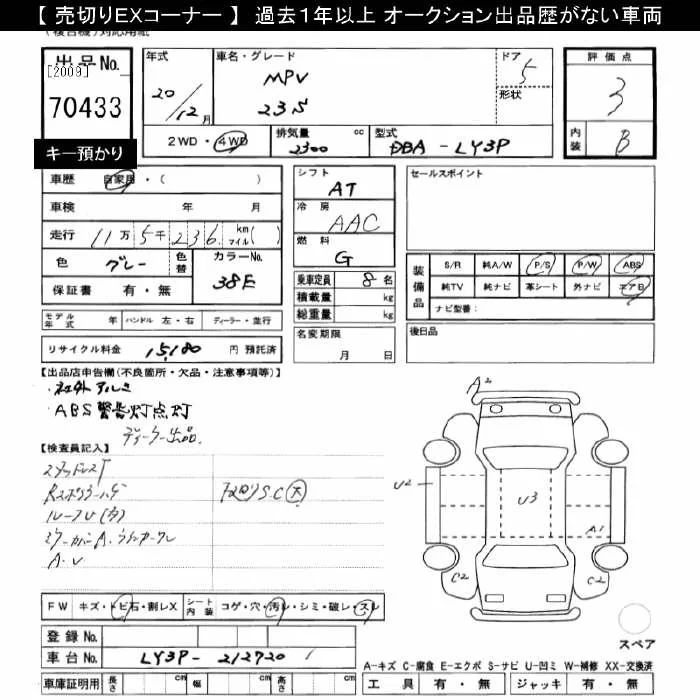 【 売切りEXコーナー 】 過去１年以上 オークション出品歴がない車両
(複合機)対応用紙
出品No. [2009]
70433
キー預かり
年式 20/12月
車名・グレード MPV 23S
ドア 5
形状
2WD・4WD
排気量 2300 cc
型式 DBA - LY3P
評価点 3
内装 B
車歴 自家用・( )
車検 年 月
走行 11万5千236 km マイル( )
色 グレー 色替 カラーNo. 38E
保証書 有・無
モデル年式 年 ハンドル 左・右 ディーラー・並行
リサイクル料金 15,180 円 預託済
シフト AT
冷房 AAC
燃料 G
乗車定員 8 名
積載量 kg
総重量 kg
名変期限 月 日
セールスポイント
装備品 S/R 純A/W P/S P/W ABS
純TV 純ナビ 革シート 外ナビ エアB
ナビ型番：
後日品
【出品店申告欄(不良箇所・欠品・注意事項等)】
・社外アルミ
・ABS警告灯点灯
ディーラー出品.
【検査員記入】
スタッドレスT
ルーフU(方)
A.U
A2
U2
U3
A1
C2
C2
FW キズ・トビ石・割レX シート内装 コゲ・穴・汚レ・シミ・破レ・スレ
登録No.
車台No. LY3P-212720
車庫証明用 長さ cm 幅 cm 高さ cm
スペア
A-キズ C-腐食 E-エクボ S-サビ U-凹ミ W-補修 XX-交換済
工具 有・無 ジャッキ 有・無